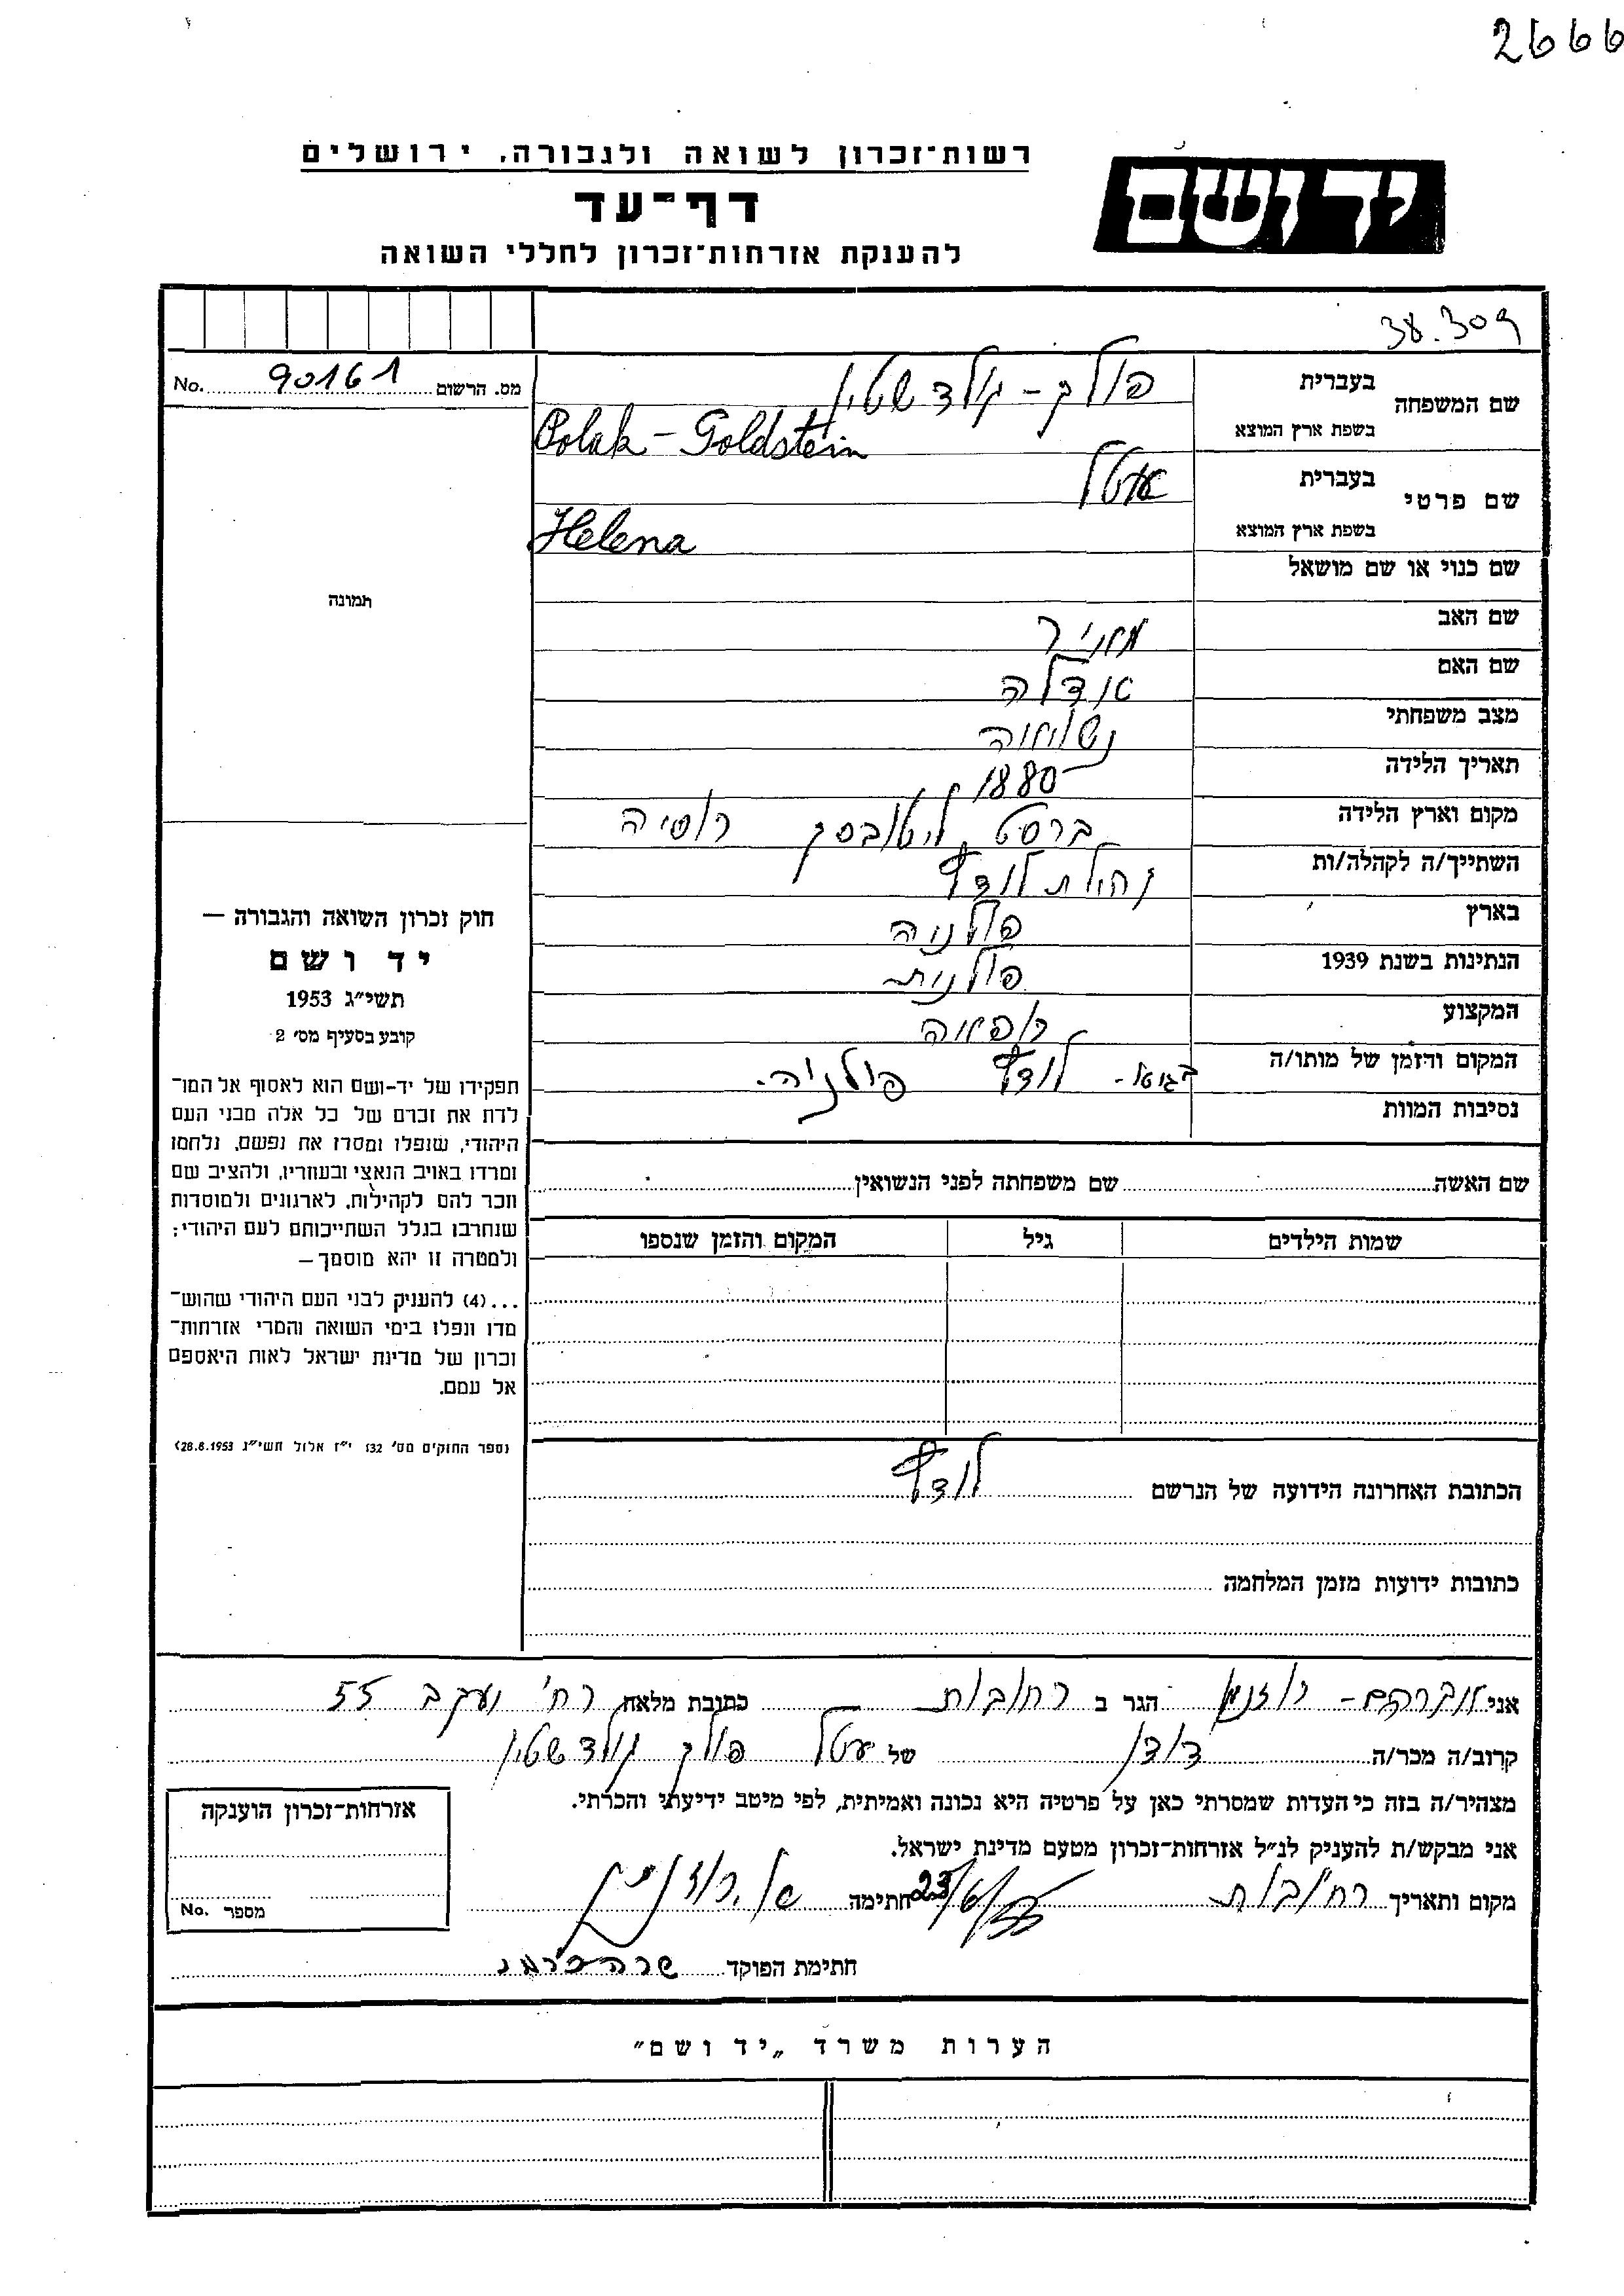 2666
יד ושם
רשות־זכרון לשואה ולגבורה, ירושלים
דף־עד
להענקת אזרחות־זכרון לחללי השואה
38.309
מס. הרשום 90161 No.
שם המשפחה
בעברית פולק - גולדשטיין
בשפת ארץ המוצא Polak - Goldstein
שם פרטי
בעברית עטל
בשפת ארץ המוצא Helena
שם כנוי או שם מושאל
שם האב
שם האם אודלה
מצב משפחתי נשואה
תאריך הלידה 1880
מקום וארץ הלידה ברסט ליטובסק רוסיה
השתייך/ה לקהלה/ות קהלת לודז'
בארץ פולניה
הנתינות בשנת 1939 פולנית
המקצוע רופאה
המקום והזמן של מותו/ה בגטו - לודז' פולניה.
נסיבות המוות
תמונה
חוק זכרון השואה והגבורה —
יד ושם
תשי״ג 1953
קובע בסעיף מס׳ 2
תפקידו של יד-ושם הוא לאסוף אל המו־
לדת את זכרם של כל אלה מבני העם
היהודי, שנפלו ומסרו את נפשם, נלחמו
ומרדו באויב הנאצי ובעוזריו, ולהציב שם
וזכר להם לקהילות, לארגונים ולמוסדות
שנחרבו בגלל השתייכותם לעם היהודי;
ולמטרה זו יהא מוסמך —
...(4) להעניק לבני העם היהודי שהוש־
מדו ונפלו בימי השואה והמרי אזרחות־
זכרון של מדינת ישראל לאות היאספם
אל עמם.
(ספר החוקים מס׳ 132 י״ז אלול תשי״ג 28.8.1953)
שם האשה שם משפחתה לפני הנשואין
שמות הילדים גיל המקום והזמן שנספו
הכתובת האחרונה הידועה של הנרשם לודז'
כתובות ידועות מזמן המלחמה
אני אברהם - רוזנמן הגר ב רחובות כתובת מלאה רח' יעקב 55
קרוב/ה מכר/ה דודן של עטל פולק גולדשטיין
מצהיר/ה בזה כי העדות שמסרתי כאן על פרטיה היא נכונה ואמיתית, לפי מיטב ידיעתי והכרתי.
אני מבקש/ת להעניק לנ״ל אזרחות־זכרון מטעם מדינת ישראל.
מקום ותאריך רחובות 23/6/55 חתימה א. רוזנמן
חתימת הפוקד שרה
אזרחות־זכרון הוענקה
מספר No.
הערות משרד „יד ושם״